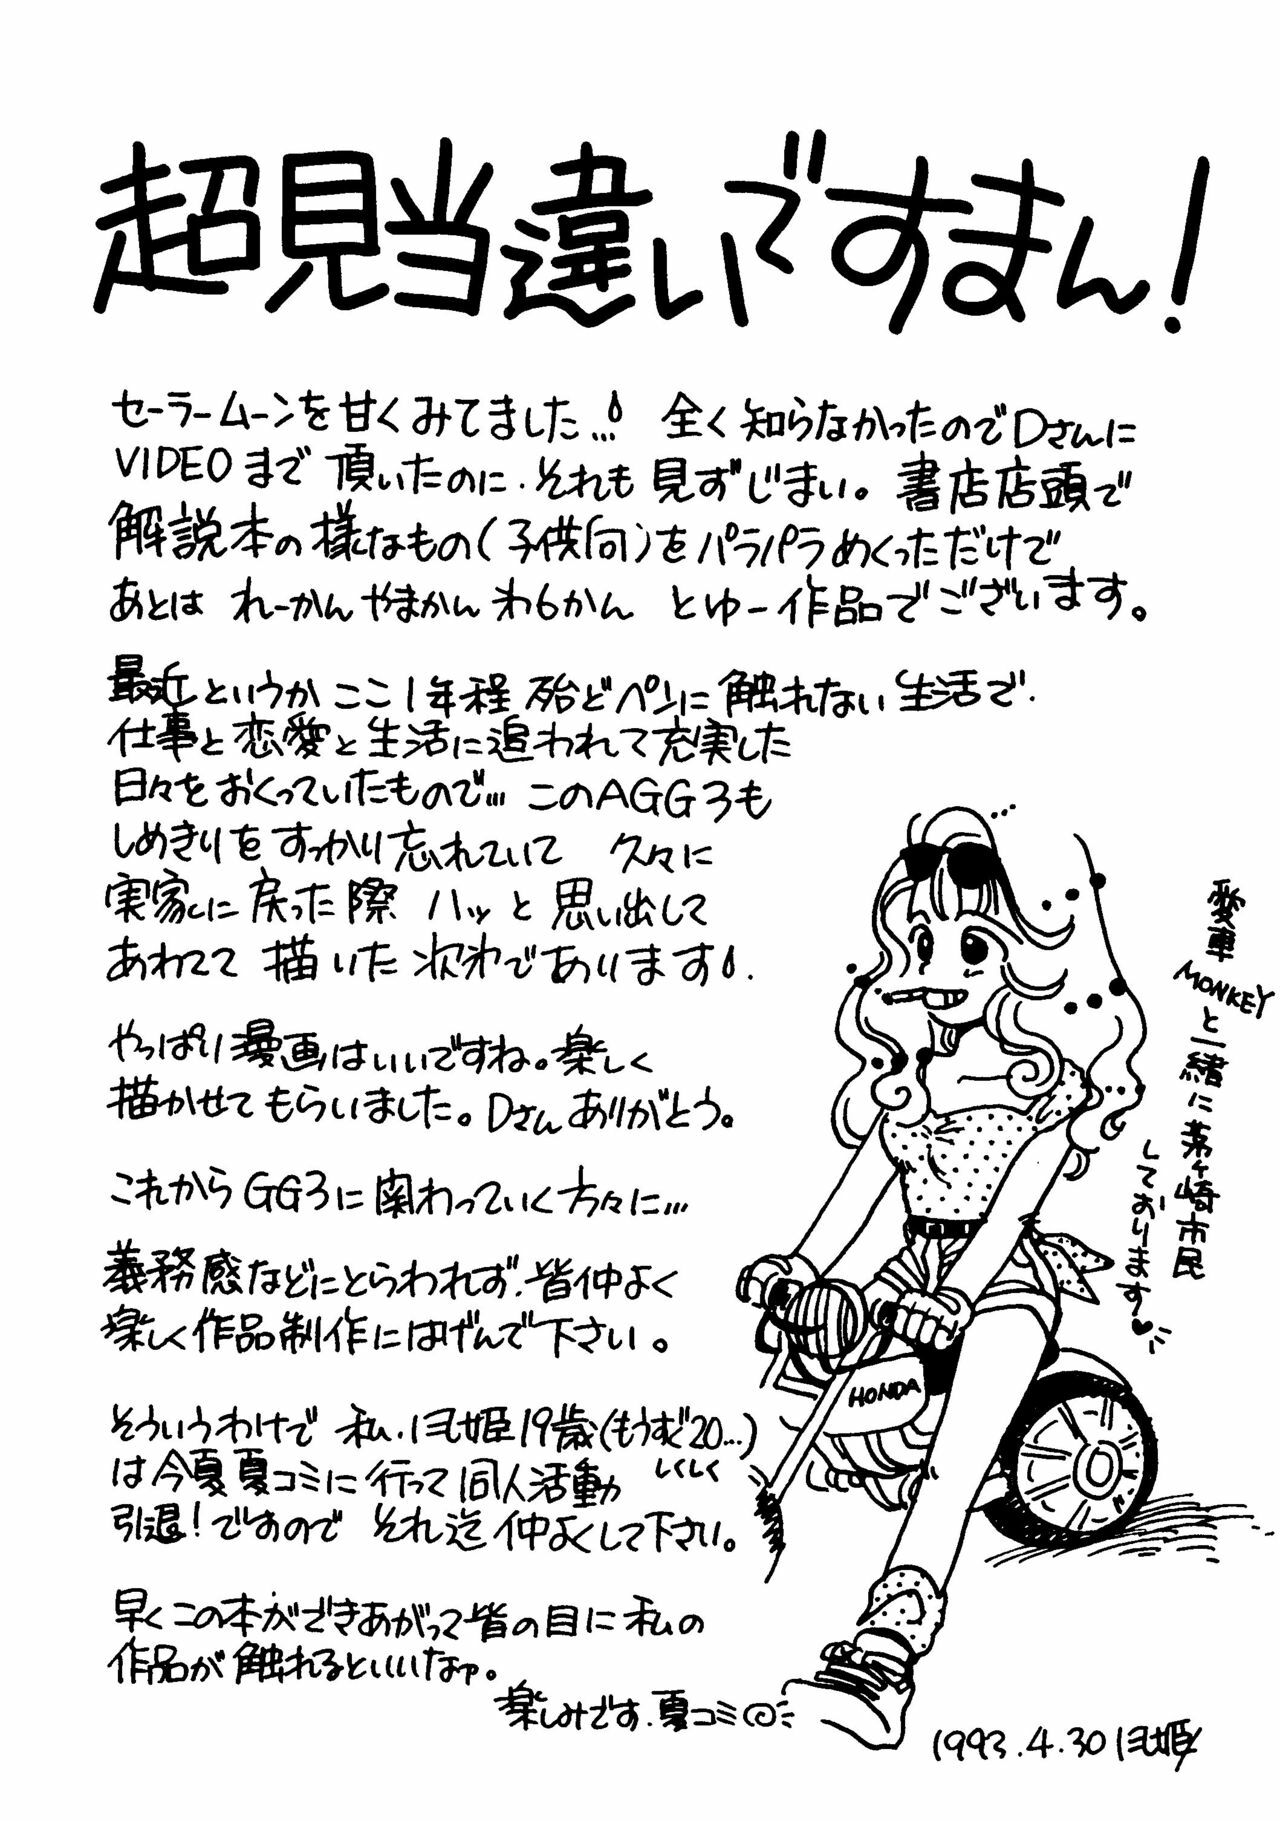 超見当違いですまん！
セーラームーンを甘くみてました…！ 全く知らなかったのでDさんに
VIDEOまで頂いたのに、それも見ずじまい。書店店頭で
解説本の様なもの(子供向)をパラパラめくっただけで
あとは れーかん やまかん わ6かん とゆー作品でございます。
最近というか ここ1年程 殆どペンに触れない生活で、
仕事と恋愛と生活に追われて充実した
日々をおくっていたもので… このAGG3も
しめきりをすっかり忘れていて 久々に
実家に戻った際 ハッと思い出して
あわてて描いた次第であります。
やっぱり漫画はいいですね。楽しく
描かせてもらいました。Dさんありがとう。
これからGG3に関わっていく方々に…
義務感などにとらわれず、皆仲よく
楽しく作品制作にはげんで下さい。
そういうわけで 私、姫19歳(もうすぐ20…)
しくしく
は今夏夏コミに行って同人活動
引退！ですので それ迄仲よくして下さい。
早くこの本ができあがって皆の目に私の
作品が触れるといいなァ。
楽しみです、夏コミ
愛車
MONKEY
と一緒に茅ヶ崎市民
しております♥
HONDA
1993.4.30 姫